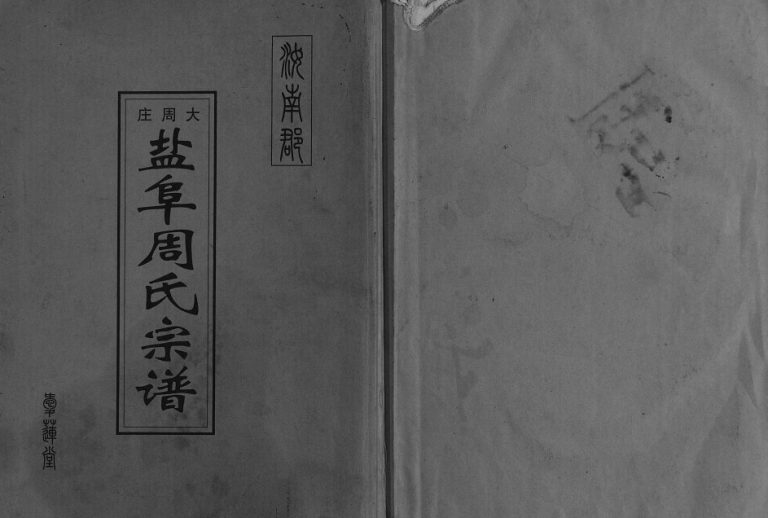 汝南郡
大周庄
盐阜周氏宗谱
爱莲堂